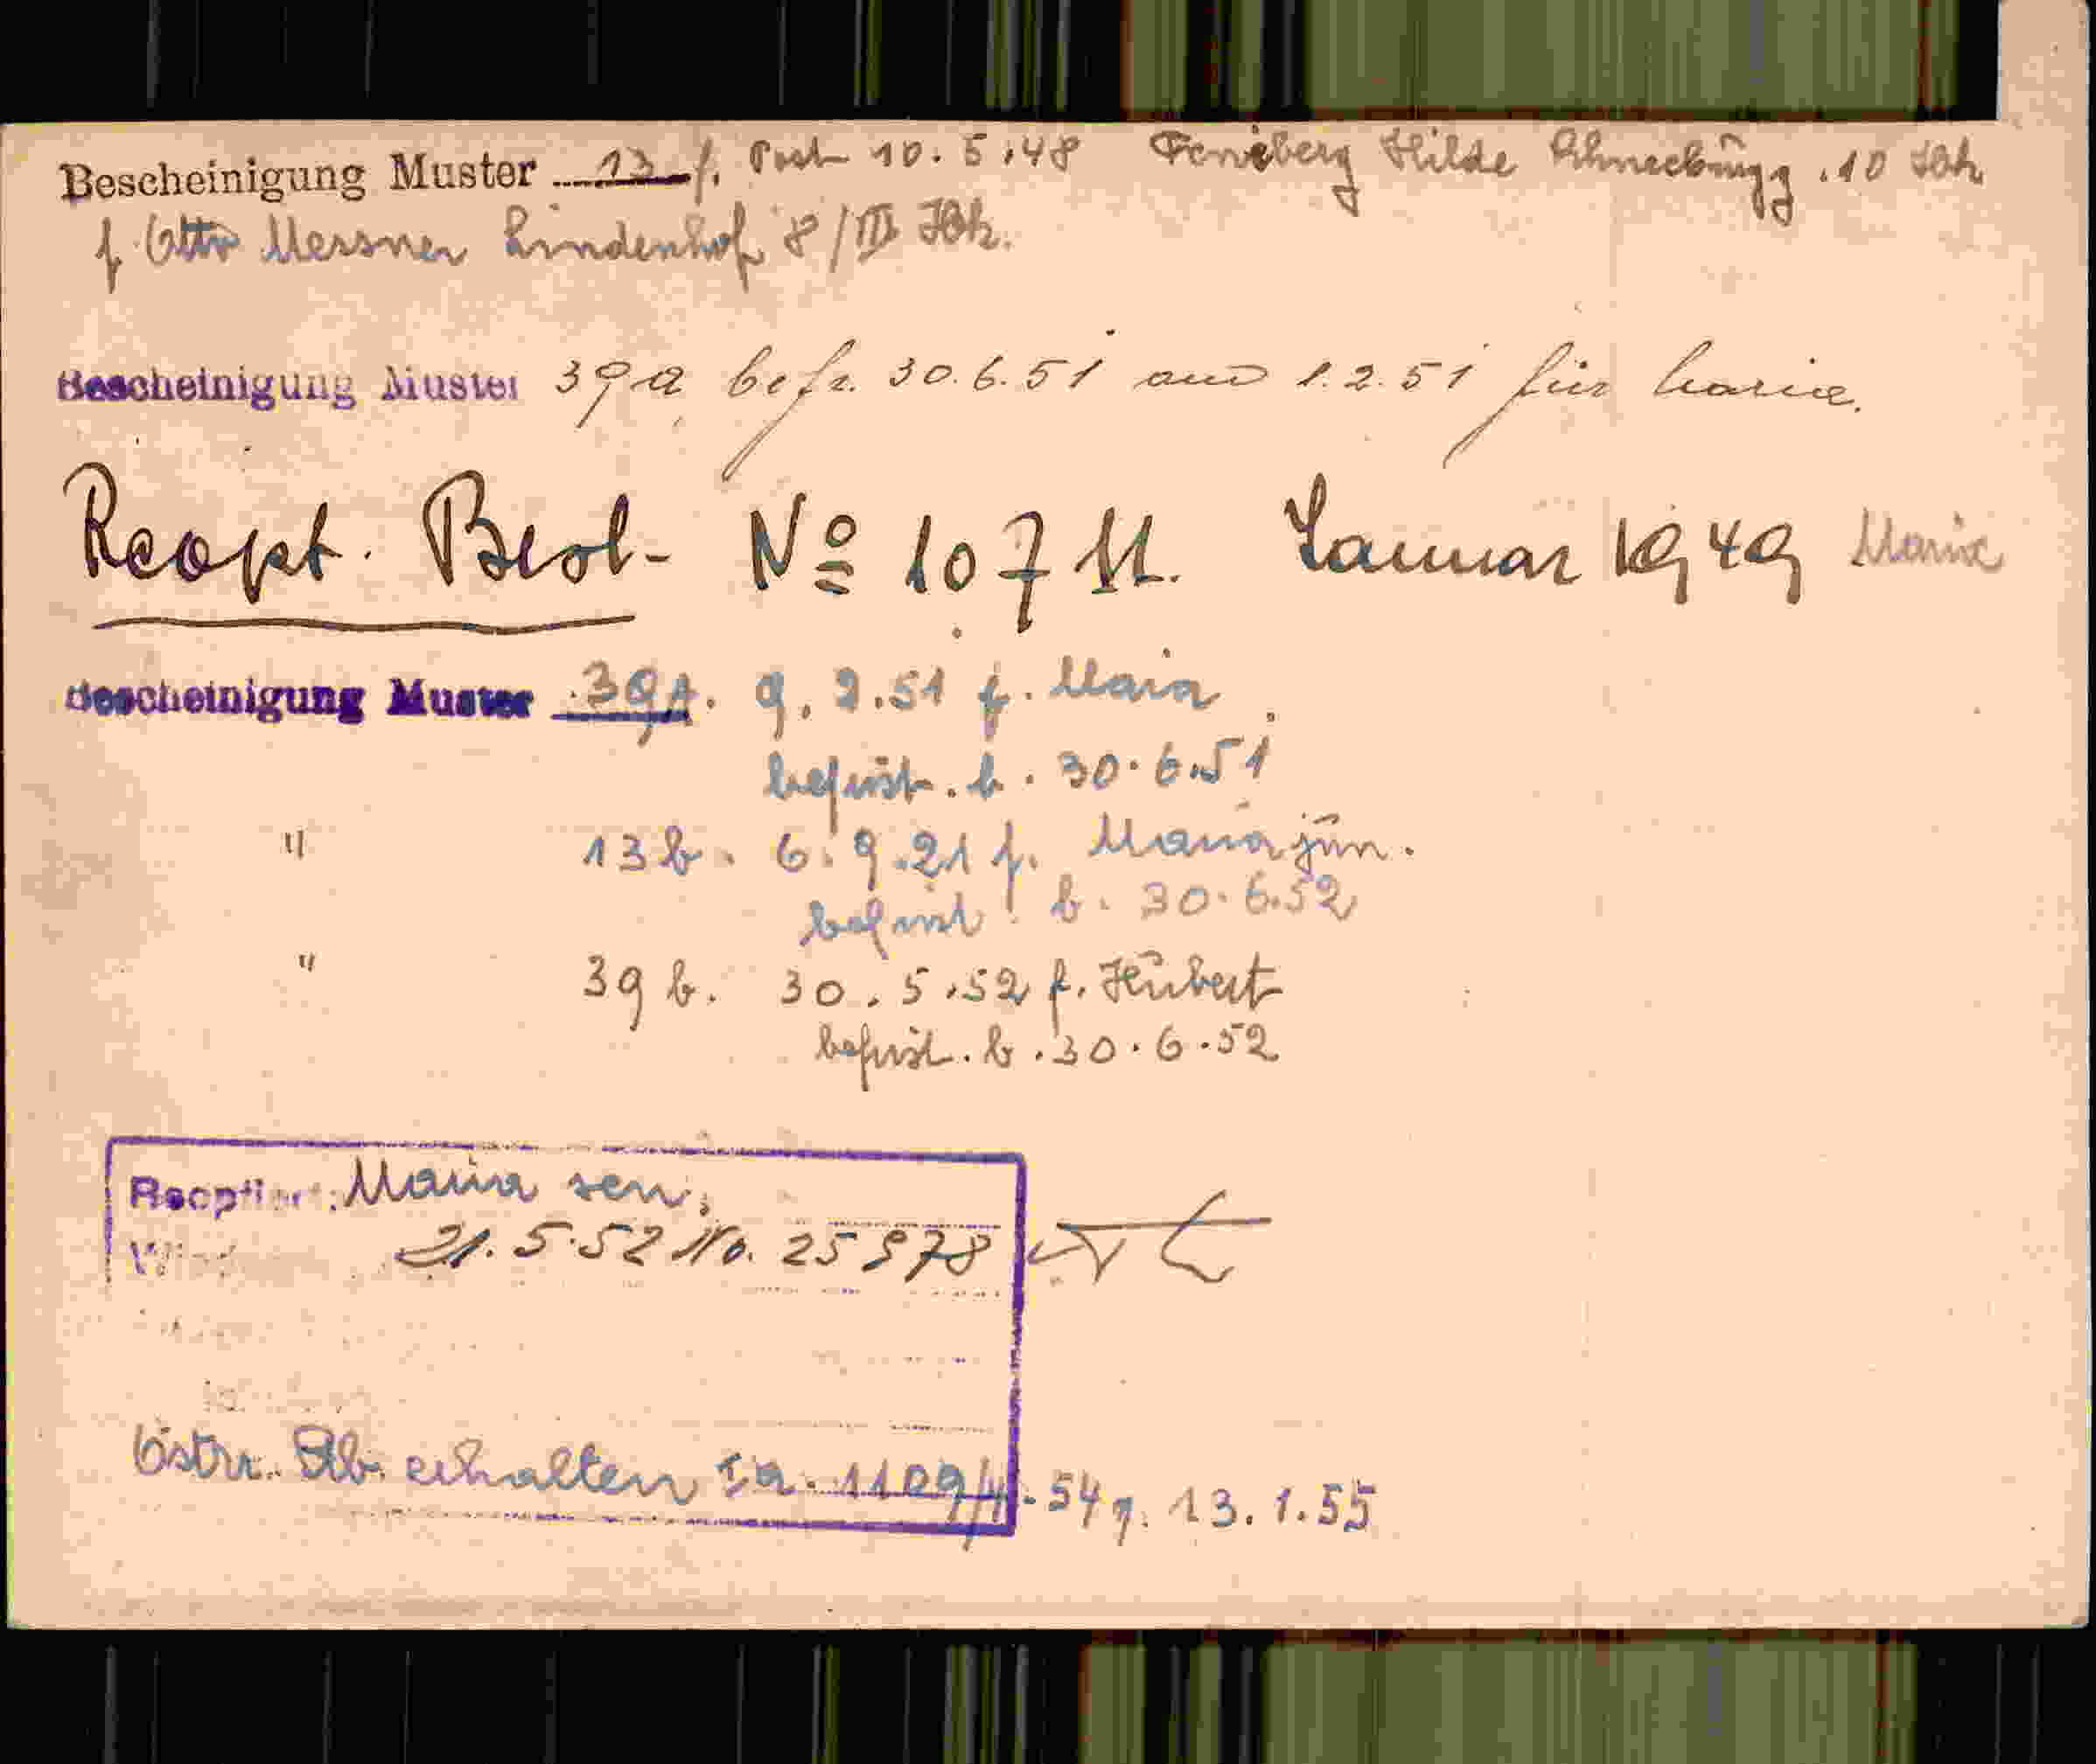 Bescheinigung Muster 13 f. Post 10.5.48 Feneberg Hilde Schneeburgg. 10 Ibk
f. Otto Messner Lindenhof 8/III Ibk.
Bescheinigung Muster 39a befr. 30.6.51 am 1.2.51 für Maria.
Reopt. Besch- No 10711. Januar 1949 Maria
Bescheinigung Muster 39A. 9.2.51 f. Maria
befrist. b. 30.6.51
" 13b. 6.9.21 f. Maria jun.
befrist. b. 30.6.52
" 39b. 30.5.52 f. Hubert
befrist. b. 30.6.52
Reoptiert: Maria sen.
21.5.52 No. 25978
Östr. Stb. erhalten Ia. 1109/4-54 v. 13.1.55